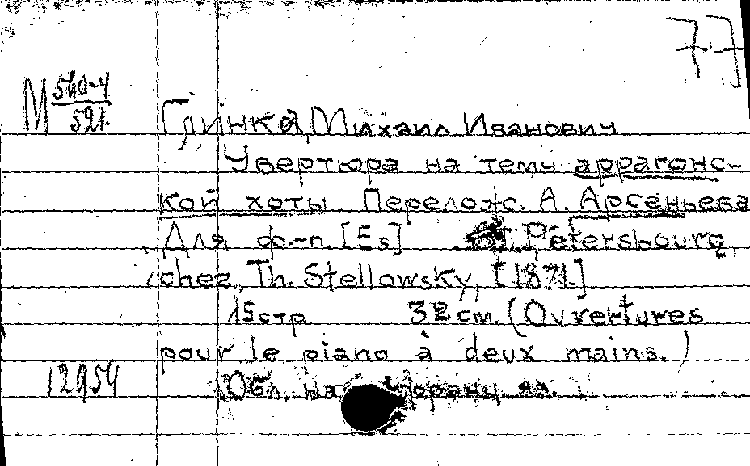 77
М 540-4
521.
Глинка, Михаил Иванович
Увертюра на тему аррагонс-
кой хоты. Перелож. А. Арсеньева
Для ф.-п. [Es] St. Pétersbourg,
chez Th. Stellowsky, [1871.]
15 стр 32 см. (Ouvertures
pour le piano à deux mains.)
12954 (Обл. на яз.